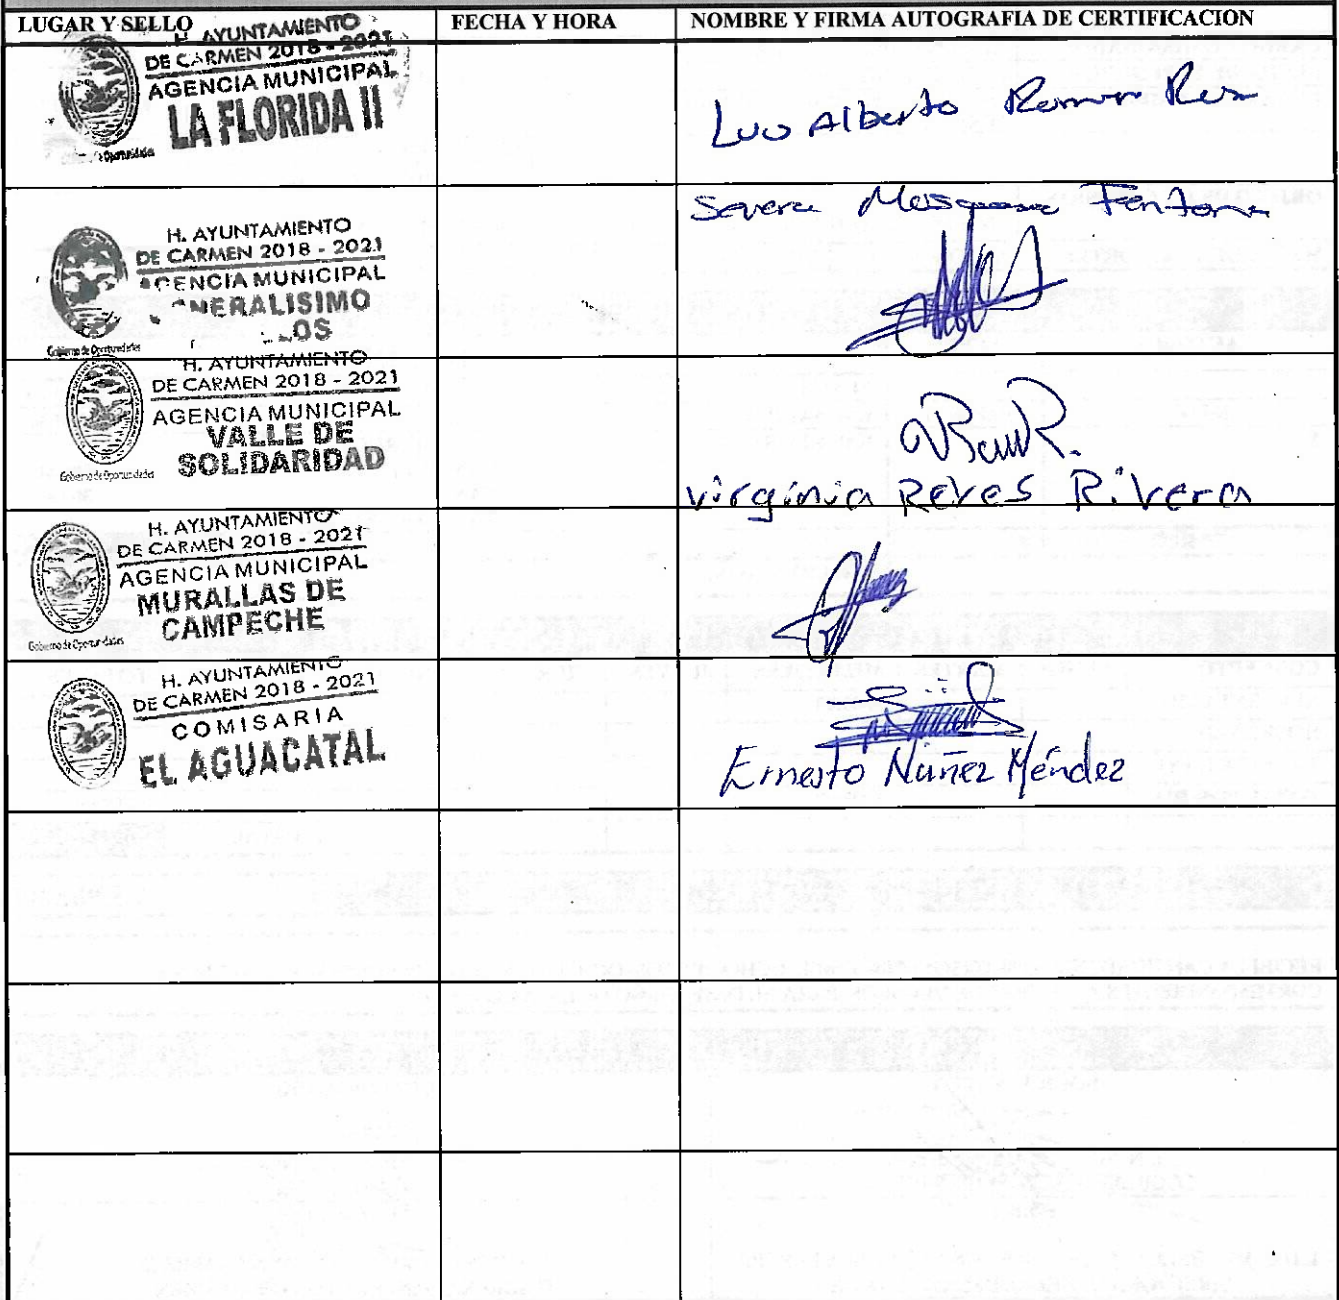 LUGAR Y SELLO
FECHA Y HORA
NOMBRE Y FIRMA AUTOGRAFIA DE CERTIFICACION
H. AYUNTAMIENTO
DE CARMEN 2018 - 2021
AGENCIA MUNICIPAL
LA FLORIDA II
Alberto
H. AYUNTAMIENTO
DE CARMEN 2018 - 2021
AGENCIA MUNICIPAL
Gobierno de Oportunidades
Severa
H. AYUNTAMIENTO
DE CARMEN 2018 - 2021
AGENCIA MUNICIPAL
VALLE DE
SOLIDARIDAD
Gobierno de Oportunidades
Virginia Reyes Rivera
H. AYUNTAMIENTO
DE CARMEN 2018 - 2021
AGENCIA MUNICIPAL
MURALLAS DE
CAMPECHE
Gobierno de Oportunidades
H. AYUNTAMIENTO
DE CARMEN 2018 - 2021
COMISARIA
EL AGUACATAL
Ernesto Núñez Méndez